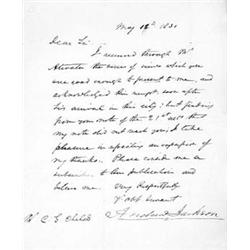 May 18th, 183
Dear Sir
I received through Mr
the series of views which you
was good enough to present to me, and
acknowledged the receipt soon after
his arrival in this city: but finding
from your note of the 21st that
my note did not reach you, I take
pleasure in repeating an expression of
my thanks. Please consider me a
subscriber to the publication and
believe me
Very respectfully
Yr obt servant
Andrew Jackson
C G Childs